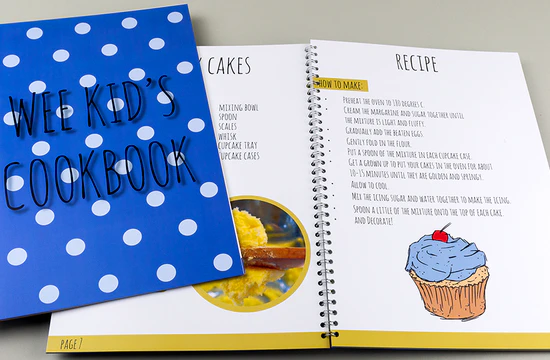 WEE KID'S
COOKBOOK
CAKES
MIXING BOWL
SPOON
SCALES
WHISK
CUPCAKE TRAY
CUPCAKE CASES
PAGE 7
RECIPE
HOW TO MAKE:
PREHEAT THE OVEN TO 180 DEGREES C.
CREAM THE MARGARINE AND SUGAR TOGETHER UNTIL
THE MIXTURE IS LIGHT AND FLUFFY.
GRADUALLY ADD THE BEATEN EGGS
GENTLY FOLD IN THE FLOUR.
PUT A SPOON OF THE MIXTURE IN EACH CUPCAKE CASE.
GET A GROWN UP TO PUT YOUR CAKES IN THE OVEN FOR ABOUT
10-15 MINUTES UNTIL THEY ARE GOLDEN AND SPRINGY.
ALLOW TO COOL.
MIX THE ICING SUGAR AND WATER TOGETHER TO MAKE THE ICING.
SPOON A LITTLE OF THE MIXTURE ONTO THE TOP OF EACH CAKE.
AND DECORATE!